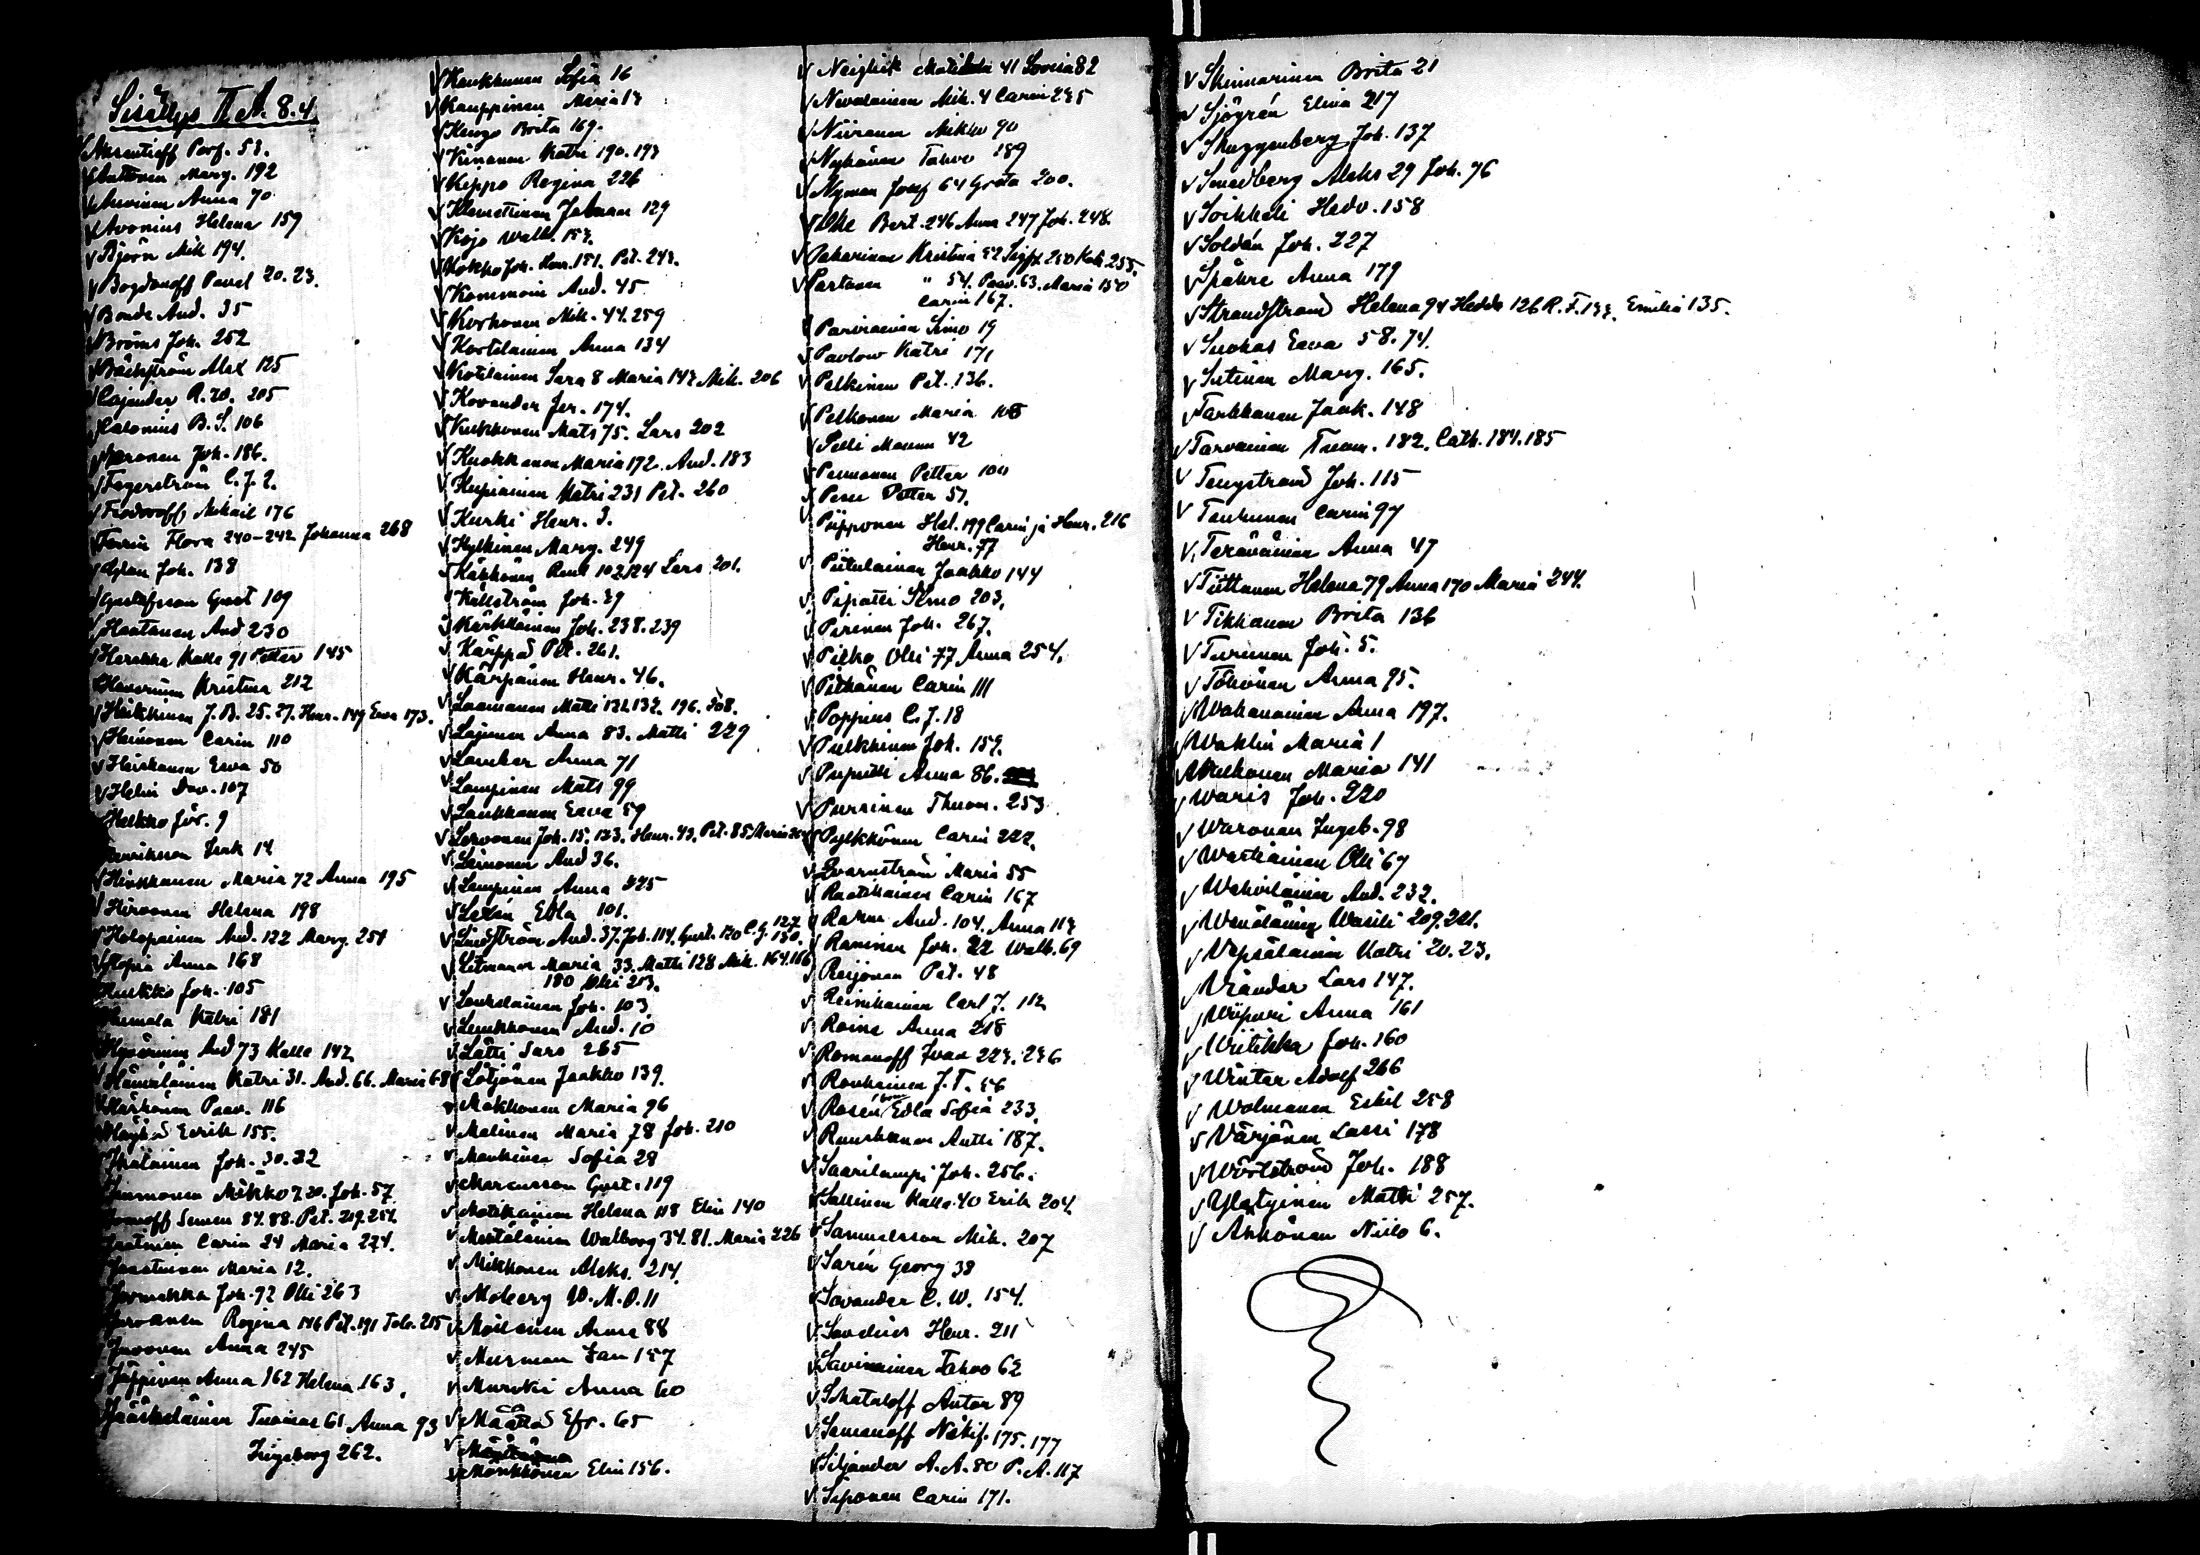 Sisällys II A. 8.4
Arsentieff Porf. 53.
Anttonen Marg. 192
Arvinen Anna 70
Avonius Helena 159
Björn Mik 194.
Bogdanoff Pavel 20. 23.
Bonde And. 35
Broms Joh. 252
Bäckström Alex 125
Cajander R. W. 205
Calonius B. S. 106
Joh. 186.
Fagerström C. J. 2.
Feodoroff Mikail 176
Forrin Flora 240-242 Johanna 268
Joh. 138
Gustafsson Gust 109
Hautanen And 230
Herakka Kalle 91 Petter 145
Kristina 212
Heikkinen J. B. 25. 27. Henr. 149 Eva 173.
Heinonen Carin 110
Heiskanen Ewa 50
Helin Dav. 107
Helkko Jör. 9
Henriksson Erik 14
Hirvkkanen Maria 72 Anna 195
Hirvonen Helena 198
Holopainen And. 122 Marg. 251
Anna 168
Huikko Joh. 105
Humala Katri 181
Hyvärinen And 73 Kalle 142
Hämäläinen Katri 31. And. 66. Maria 68
Härkönen Paav. 116
Höykä Eerik 155.
Ikalainen Joh. 30. 32
Immonen Mikko 7. 20. Joh. 57
Semen 84. 88. Pet. 219. 254.
Carin 24 Maria 224.
Jaatinen Maria 12.
Jormakka Joh. 92 Olli 263
Regina 146 Pet. 191 Joh. 215
Juvonen Anna 245
Jäppinen Anna 162 Helena 163.
Jääskeläinen Tuomas 61 Anna 93
Ingeborg 262.
Kaukkunen Sofia 16
Kauppinen Maria 13
Brita 169.
Kinanen Katri 190. 193
Kippo Regina 226
Klemettinen Johanna 129
Kojo Walb. 153.
Kokko Joh. Henr. 151. Pet. 243.
Kommoin And. 45
Korhonen Mik. 44. 259
Kortelainen Anna 134
Kotilainen Sara 8 Maria 143 Mik. 206
Kovander Jer. 174.
Kukkonen Mats 75. Lars 202
Kuokkanen Maria 172. And. 183
Kupiainen Katri 231 Pet. 260
Kurki Henr. 3.
Kylkinen Marg. 249
Käkkönen Anna 102. 124 Lars 201.
Källström Joh. 29
Kärkkäinen Joh. 238. 239
Kärppä Pet. 261.
Kärpänen Henr. 46.
Laamanen Matti 131. 132. 196. 208.
Lajunen Anna 83. Matti 229
Lancker Anna 71
Lampinen Mats 99
Laukkanen Eeva 59
Lervonen Joh. 15. 123. Henr. 43. Pet. 85. Maria
Leinonen And 36.
Lempinen Anna 225
Lexén Edla 101.
Lindström And. 37. Joh. 114. Gust. 120 C. G. 127. J. 130.
Litmanen Maria 33. Matti 128 Mik. 164. 166
180 Olli 213.
Loukelainen Joh. 103
Lunkkonen And. 10
Lätti Lars 265
Lötjönen Jaakko 139.
Makkonen Maria 96
Malinen Maria 78 Joh. 210
Mankinen Sofia 28
Marcusson Gust. 119
Matikainen Helena 118 Elin 140
Mertäläinen Walborg 34. 81. Maria 226
Mikkonen Aleks. 214.
Moberg W. M. O. 11
Moilanen Anna 88
Murman Jan 157
Murtki Anna 60
Määttä Efr. 65
Mönkkönen Elin 156.
Neiglick Matilda 41 Lovisa 82
Nevalainen Mik. 4 Carin 235
Niiranen Mikko 90
Nykänen Tahvo 189
Nyman Josef 64 Greta 200.
Ohe Bert. 246 Anna 247 Joh. 248.
Pakarinen Kristina 52 Sigfr. 250 Katr. 255.
Partanen " 54. Paav. 63. Maria 150
Carin 167.
Parviainen Simo 19
Pavlow Katri 171
Pelkinen Pet. 136.
Pelkonen Maria 108
Pelli Maunu 42
Pennanen Petter 100
Pesu Petter 51.
Piipponen Hel. 199 Carin ja Henr. 216
Henr. 77
Piitulainen Jaakko 144
Pipatti Simo 203.
Pirinen Joh. 267.
Pitko Olli 77 Anna 254.
Pitkänen Carin 111
Poppius C. J. 18
Pulkkinen Joh. 159.
Puputti Anna 86.
Purrinen Thom. 253
Pylkkönen Carin 222.
Qvarnström Maria 55
Raatikainen Carin 167
And. 104. Anna 113
Raninen Joh. 22 Walb. 69
Reijonen Pet. 48
Reinikainen Carl J. 112
Roine Anna 218
Romanoff Ivan 223. 236
Ronkainen J. T. 56
Rosén Edla Sofia 233.
Ruuskanen Antti 187.
Saarilampi Joh. 256.
Sallinen Kalle 40 Erik 204.
Samuelsson Mik. 207
Sarén Georg 38
Savander C. W. 154.
Savelius Henr. 211
Savinainen Tahvo 62
Schataloff Anton 89
Semenoff Nikif. 175. 177
Siljander A. A. 80 P. A. 117
Siponen Carin 171.
Skinnarinen Brita 21
Sjögrén Elina 217
Skuggenberg Joh. 137
Smedberg Aleks 29 Joh. 76
Soikkeli Hedv. 158
Soldán Joh. 227
Spåhre Anna 179
Strandstrand Helena 94 Hedda 126 R. F. 133. Emilia 135.
Suokas Eeva 58. 74.
Sutinen Marg. 165.
Tarkkanen Jaak. 148
Tarvainen Tuom. 182. Cath. 184. 185
Tengstrand Joh. 115
Tenhunen Carin 97
Teräväinen Anna 47
Tiittanen Helena 79 Anna 170 Maria 244.
Tikkanen Brita 136
Turunen Joh. 5.
Töhönen Anna 95.
Wakanainen Anna 197.
Waklin Maria 1
Walkonen Maria 141
Waris Joh. 220
Waronen Ingeb. 98
Wartiainen Olli 67
Wehviläinen And. 232.
Wenäläinen Wasili 209. 221.
Vepsäläinen Katri 20. 23.
Viander Lars 147.
Wiipuri Anna 161
Wiitikka Joh. 160
Winter Adolf 266
Wolmanen Eskil 258
Värjönen Lassi 178
Wörlström Joh. 188
Ylatyinen Matti 257.
Ahkönen Niilo 6.